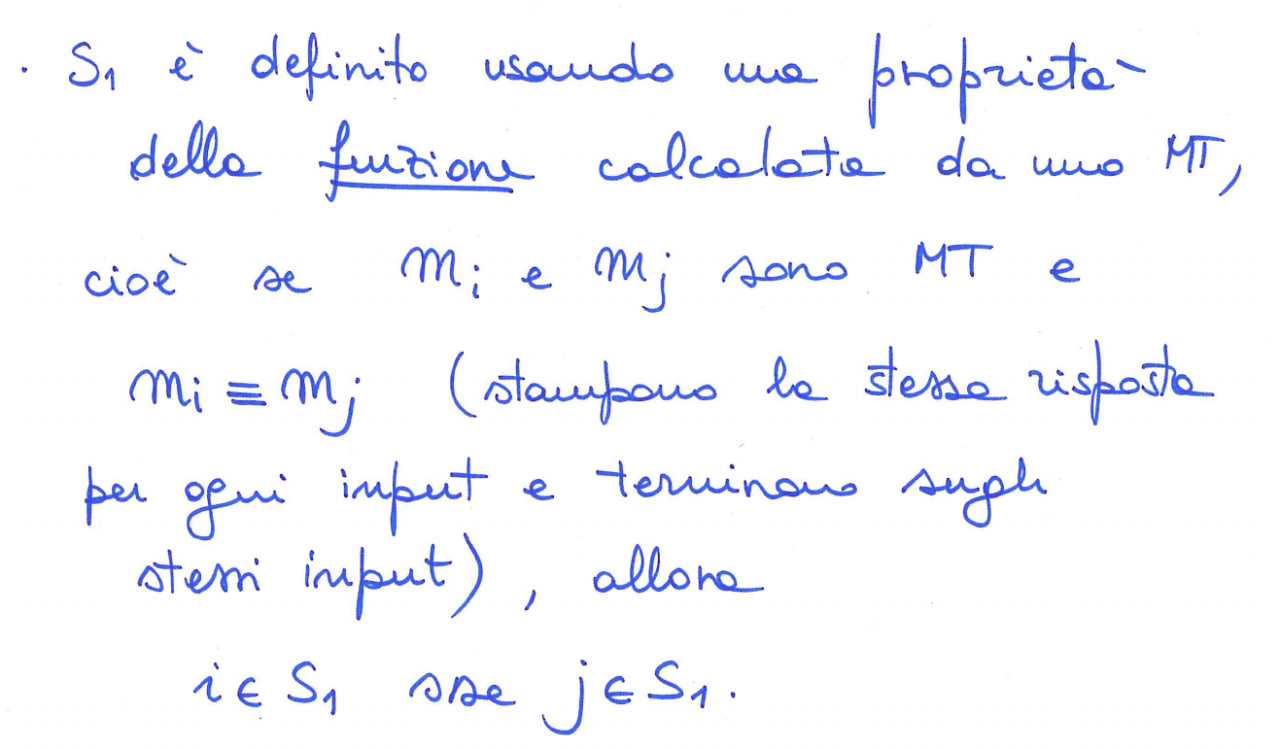 · S₁ è definito usando una proprietà
della funzione calcolata da una MT,
cioè se Mi e Mj sono MT e
Mi ≡ Mj (stampano la stessa risposta
per ogni input e terminano sugli
stessi input), allora
i ∈ S₁ sse j ∈ S₁.